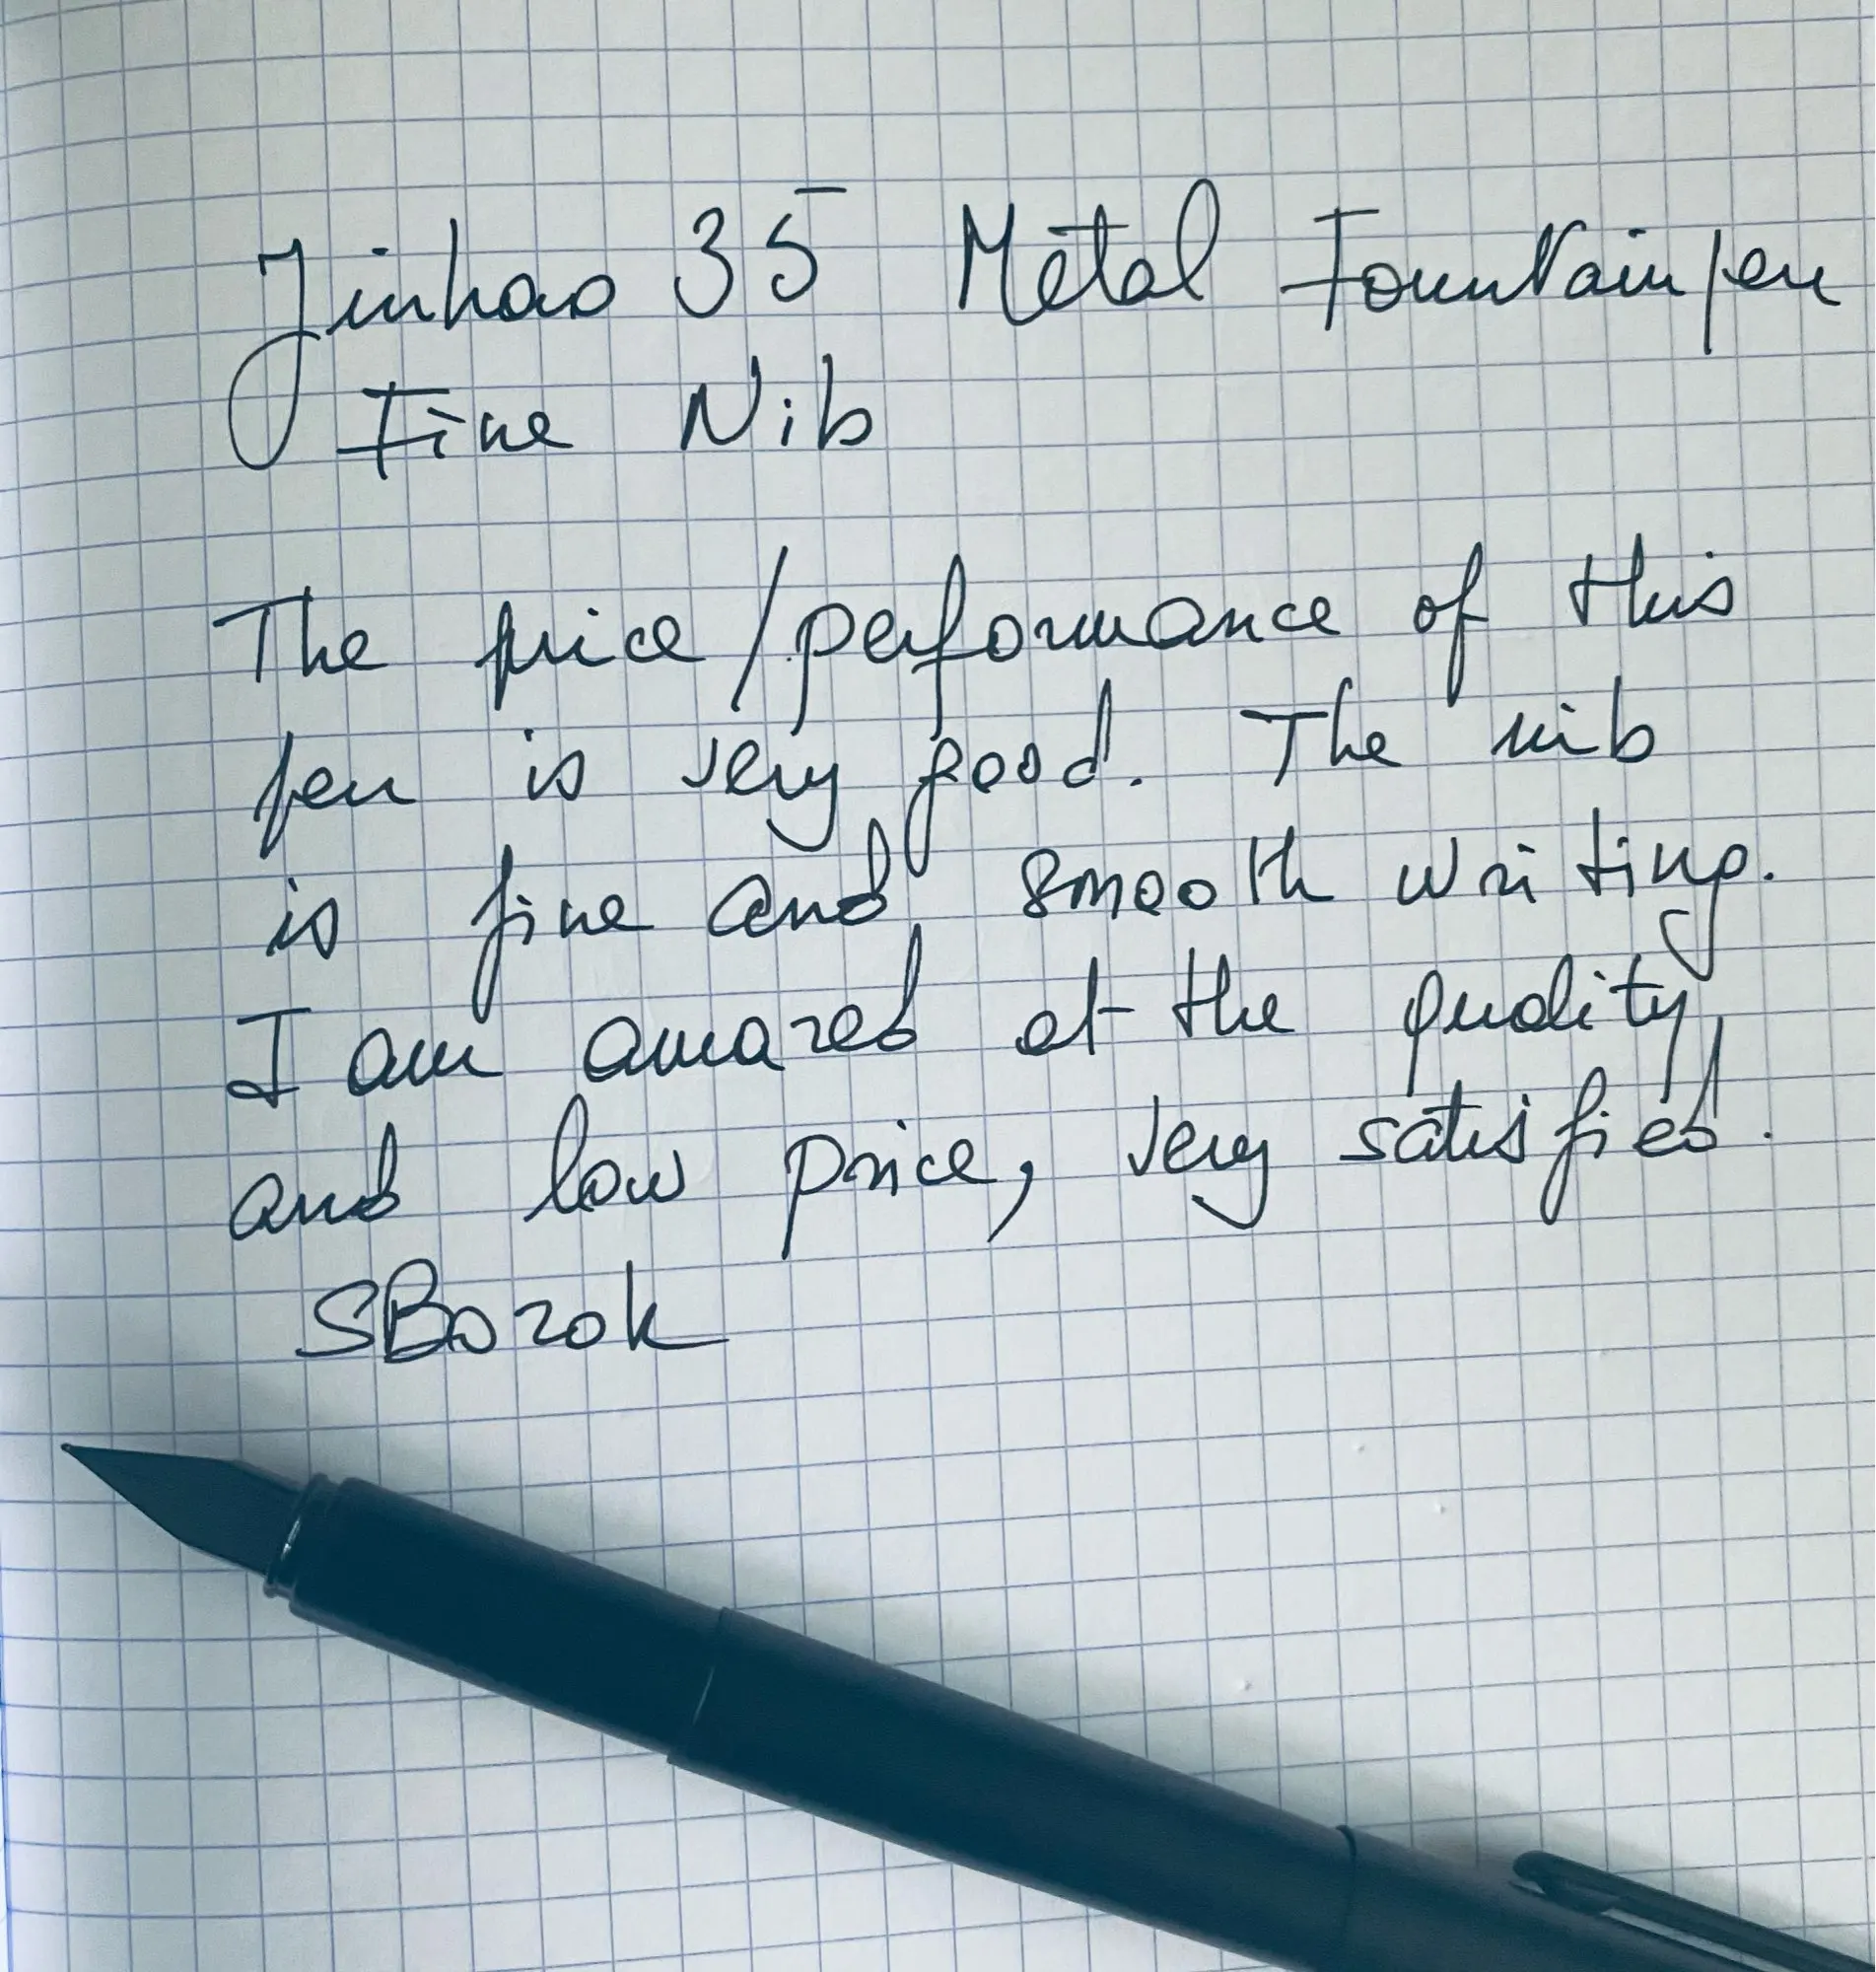 Jinhao 35 Metal Fountain pen
Fine Nib
The price/performance of this
pen is very good. The nib
is fine and smooth writing.
I am amazed at the quality
and low price, very satisfied.
SBozok